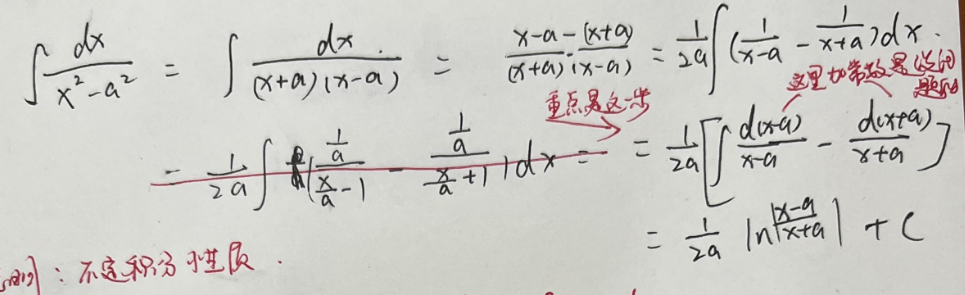 ∫ dx/(x²-a²) = ∫ dx/((x+a)(x-a)) = (x-a-(x+a))/((x+a)·(x-a)) = 1/2a ∫ (1/(x-a) - 1/(x+a)) dx.
重点是这一步
这里加常数是
= 1/2a ∫ ((1/a)/(x/a - 1) - (1/a)/(x/a + 1)) dx = = 1/2a [∫ d(x-a)/(x-a) - d(x+a)/(x+a)]
= 1/2a ln|(x-a)/(x+a)| + C
: 不定积分性质.